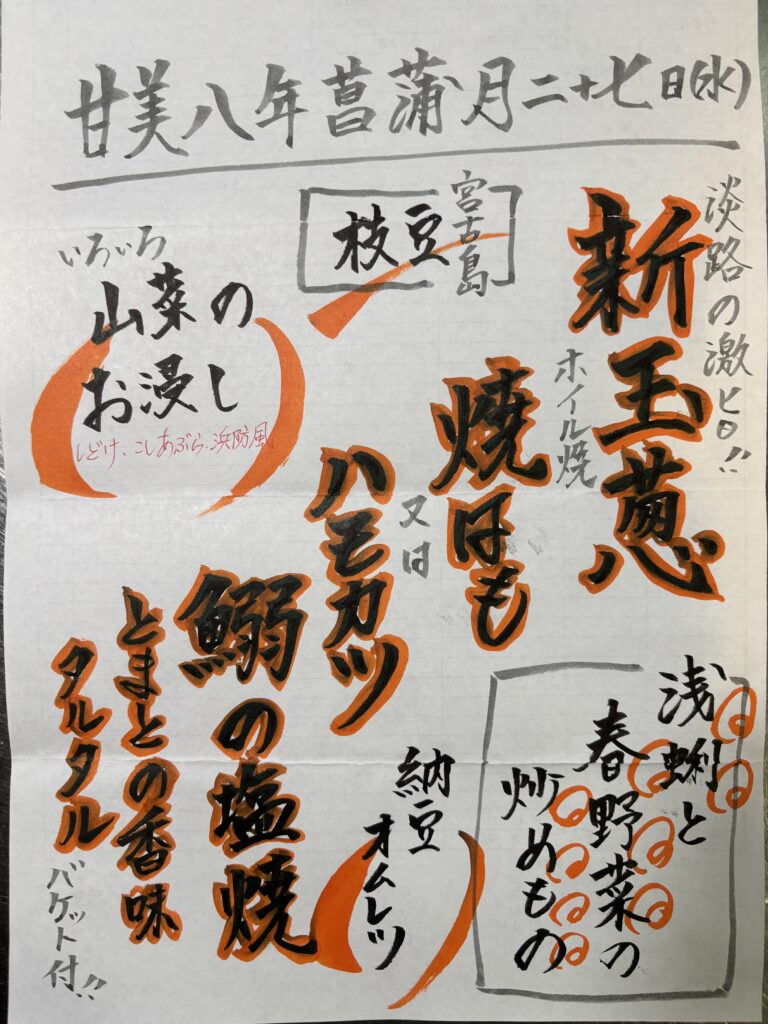 廿美八年菖蒲月二十七日(水)
淡路の激ヒロ!!
新玉葱
ホイル焼
宮古島
枝豆
焼はも
又は
ハモカツ
いろいろ
山菜の
お浸し
しどけ、こしあぶら、浜防風
鰯の塩焼
とまとの香味
タルタル
バケット付!!
納豆
オムレツ
浅蜊と
春野菜の
炒めもの